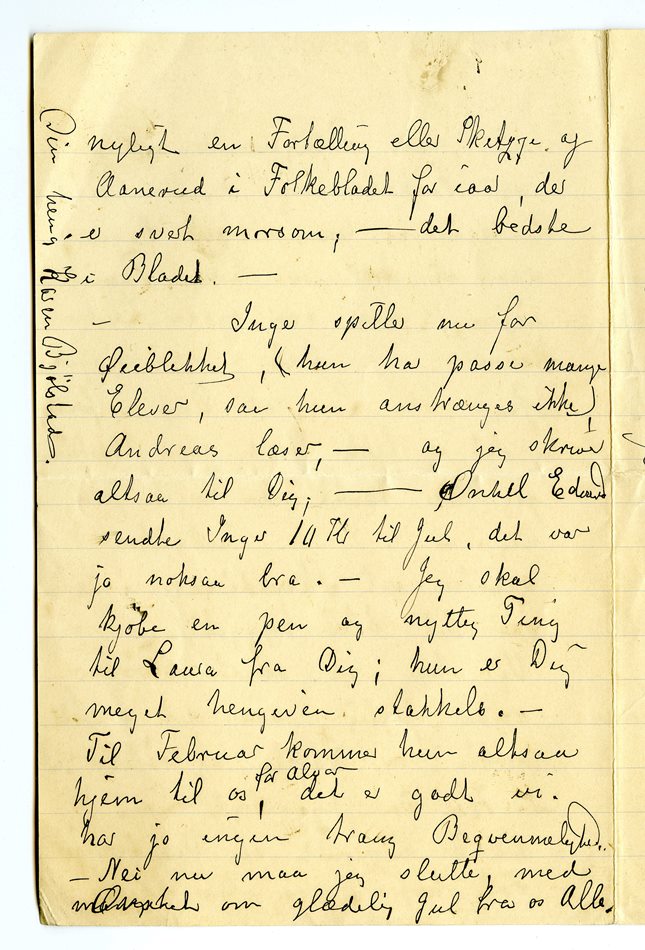 nyligt en Fortælling eller Skitzze af
Aanerud i Folkebladet for iaar, der
er svert morsom, — det bedste
i Bladet. —
– Inger spiller nu for
Øieblikket, (hun har passe mange
Elever, saa hun anstrænges ikke)
Andreas læser, — og jeg skriver
altsaa til Dig; — Onkel Edvard
sendte Inger 10 Kr til Jul, det var
jo noksaa bra. — Jeg skal
kjøbe en pen og nyttig Ting
til Laura fra Dig; hun er Dig
meget hengiven stakkels. —
Til Februar kommer hun altsaa
for alvor
hjem til os, det er godt vi
har jo ingen trang Beqvemmelighed.
– Nei nu maa jeg slutte, med
Ønsket om glædelig Jul fra os Alle.
Din heng Karen Bjølstad.